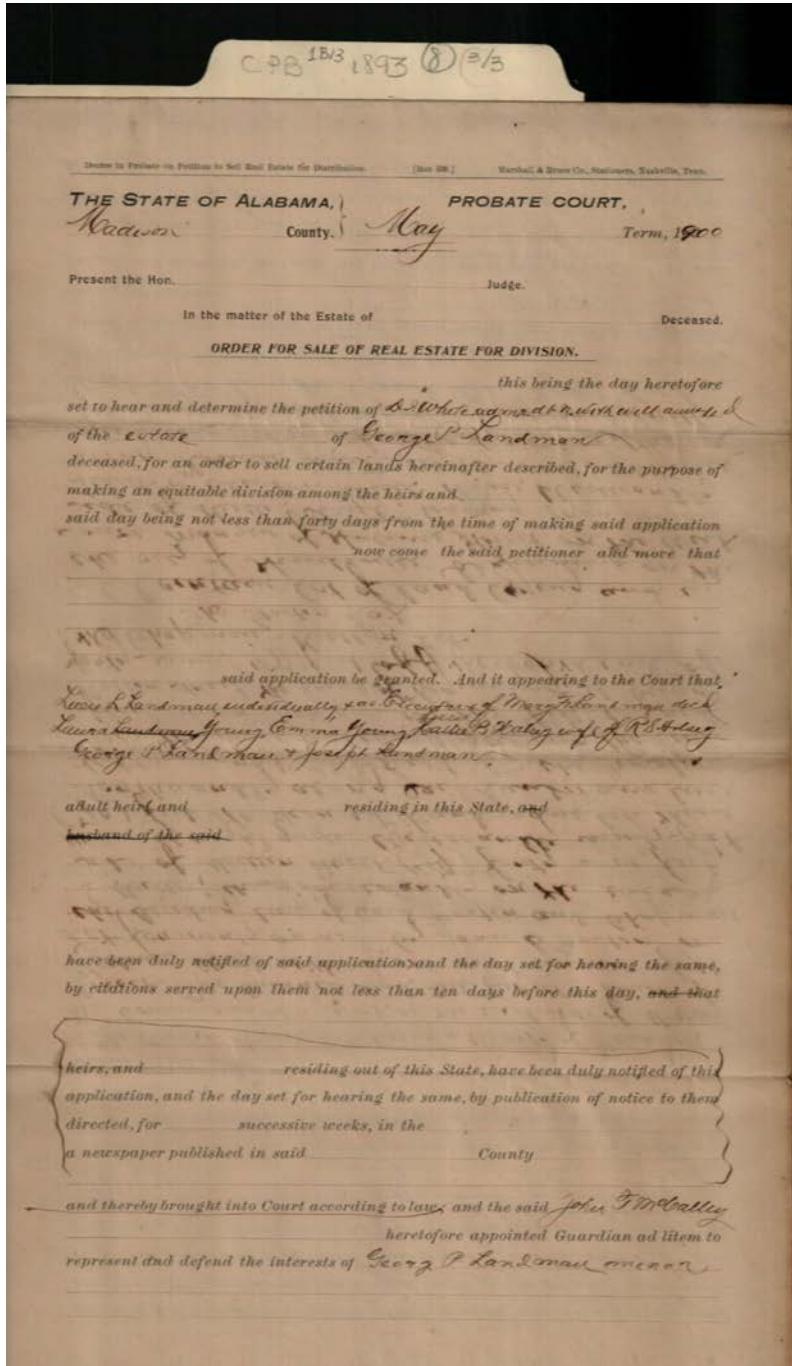 CPB 1B13 1893 (8) (3/3)
Decree in Probate on Petition to Sell Real Estate for Distribution. Marshall & Bruce Co., Stationers, Nashville, Tenn.
THE STATE OF ALABAMA, PROBATE COURT,
Madison County. May Term, 1900
Present the Hon. Judge.
In the matter of the Estate of Deceased.
ORDER FOR SALE OF REAL ESTATE FOR DIVISION.
this being the day heretofore
set to hear and determine the petition of D. White with will annexed
of the estate of George P Landman
deceased, for an order to sell certain lands hereinafter described, for the purpose of
making an equitable division among the heirs and
said day being not less than forty days from the time of making said application
now come the said petitioner and move that
said application be granted. And it appearing to the Court that
L Landman individually & as of Mary Landman decd
Laura Landman Young Emma Young B wife of R E
George P Landman & Joseph Landman
adult heirs and residing in this State, and
husband of the said
have been duly notified of said application and the day set for hearing the same,
by citations served upon them not less than ten days before this day, and that
heirs, and residing out of this State, have been duly notified of this
application, and the day set for hearing the same, by publication of notice to them
directed, for successive weeks, in the
a newspaper published in said County
and thereby brought into Court according to law, and the said John McCalley
heretofore appointed Guardian ad litem to
represent and defend the interests of Georg P Landman minor